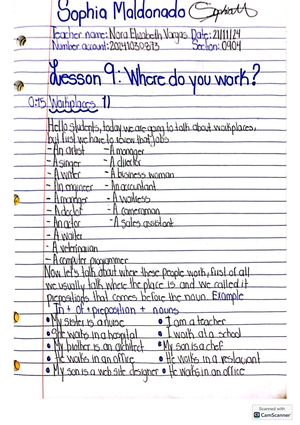 Sophia Maldonado
Teacher name: Nora Elizabeth Vargas Date: 21/11/24
Number account: 20241030373 Section: 0904
Lesson 9: Where do you work?
0:15 Workplaces 1)
Hello students, today we are going to talk about workplaces,
but first we have to review that jobs
- An artist - A manager
- A singer - A director
- A writer - A business woman
- An engineer - An accountant
- A manager - A waitress
- A doctor - A cameraman
- An actor - A sales assistant
- A waiter
- A veterinarian
- A computer programmer
Now let's talk about where these people work, first of all
we usually talk where the place is and we called it
prepositions that comes before the noun. Example
+ of + preposition + nouns
• My sister is a nurse • I am a teacher
• She works in a hospital • I work at a school
• My brother is an architect • My son is a chef
• He works in an office • He works in a restaurant
• My son is a web site designer • He works in an office
Scanned with
CamScanner